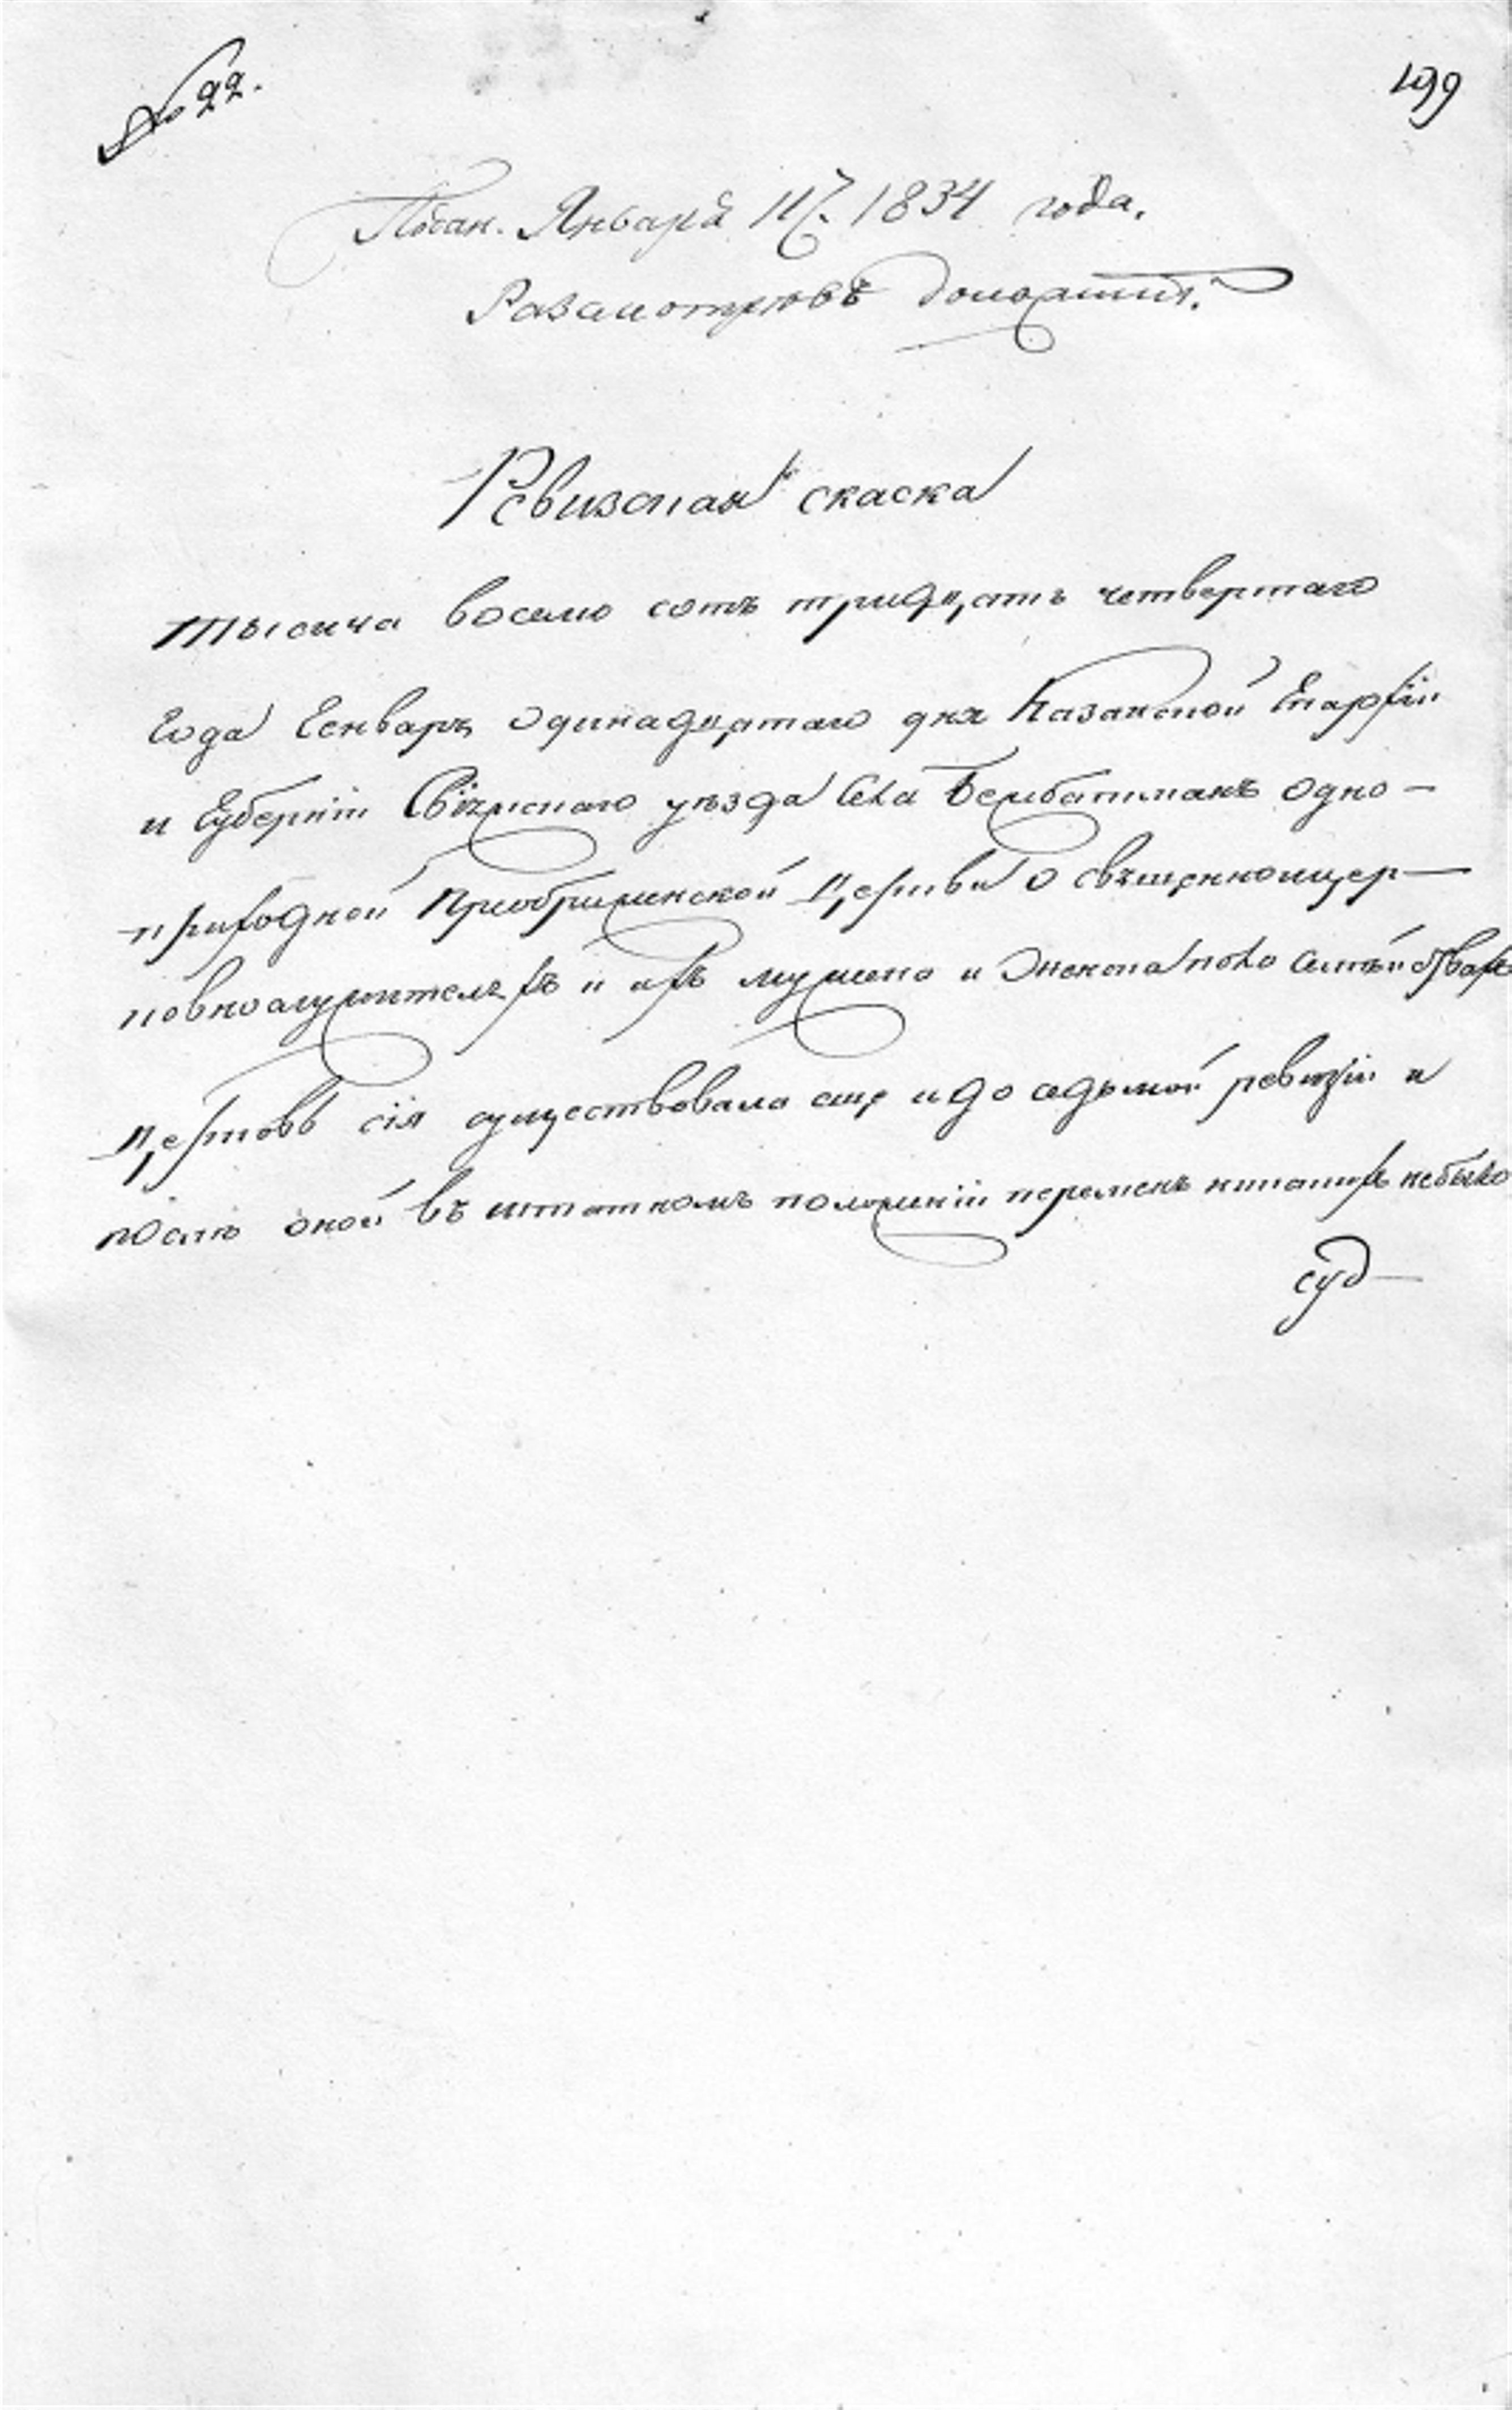 № 22.
199
Января 11. 1834 года.
Разсмотревъ
Ревизская скаска
Тысяча восемь сотъ тридцать четвертаго
года Генваря одинадцатаго дня Казанской Епархіи
и Губерніи Свіяжскаго уѣзда Села Бембатманъ одно-
приходной Преображенской Церкви о священноцер-
ковнослужителяхъ и ихъ мужеска и Женска пола
Церковь сія существовала еще и до седьмой ревизіи и
послѣ оной въ штатномъ положеніи перемѣнъ никакихъ небыло
суд-